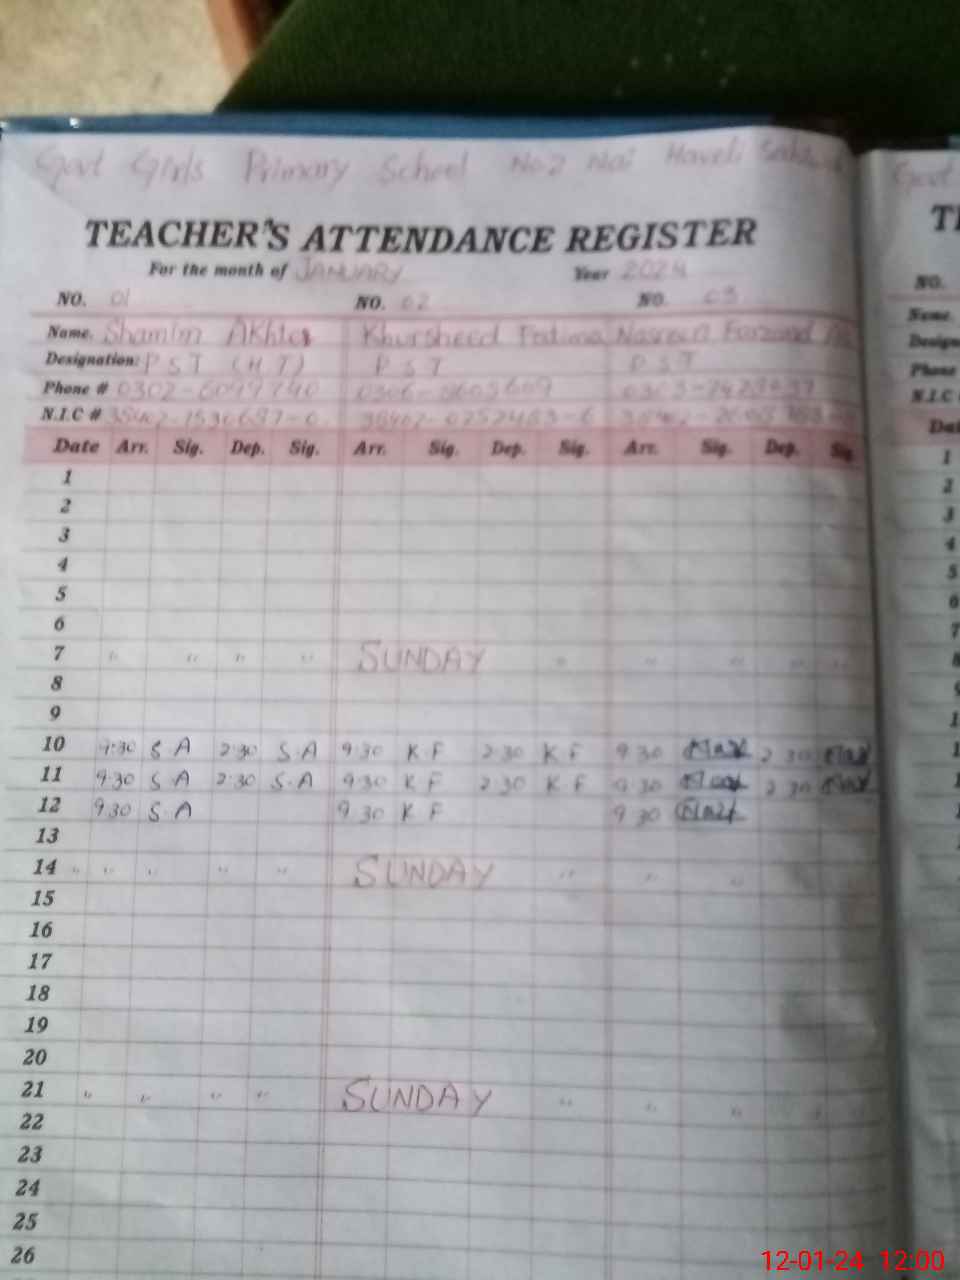 Govt Girls Primary School No 2 Nai Haveli
TEACHER'S ATTENDANCE REGISTER
For the month of JANUARY Year 2024
NO. 01 NO. 02 NO. 03
Name. Shamim Akhter Khursheed Fatima Nasreen
Designation: P S T (H T) P S T P S T
Phone #
N.I.C #
Date Arr. Sig. Dep. Sig. Arr. Sig. Dep. Sig. Arr. Sig. Dep. Sig.
1
2
3
4
5
6
7 " " " " SUNDAY " " " " "
8
9
10 9:30 S A 2:30 S.A 9 30 K F 2 30 K F 9 30 2 30
11 9:30 S A 2:30 S.A 9:30 K F 2:30 K F 9 30 2 30
12 9 30 S.A 9 30 K F 9 30
13
14 " " " " " SUNDAY " " "
15
16
17
18
19
20
21 " " " " SUNDAY " " " " "
22
23
24
25
26
Govt
NO.
Name
Phone
N.I.C
1
2
3
4
5
6
7
8
12-01-24 12:00